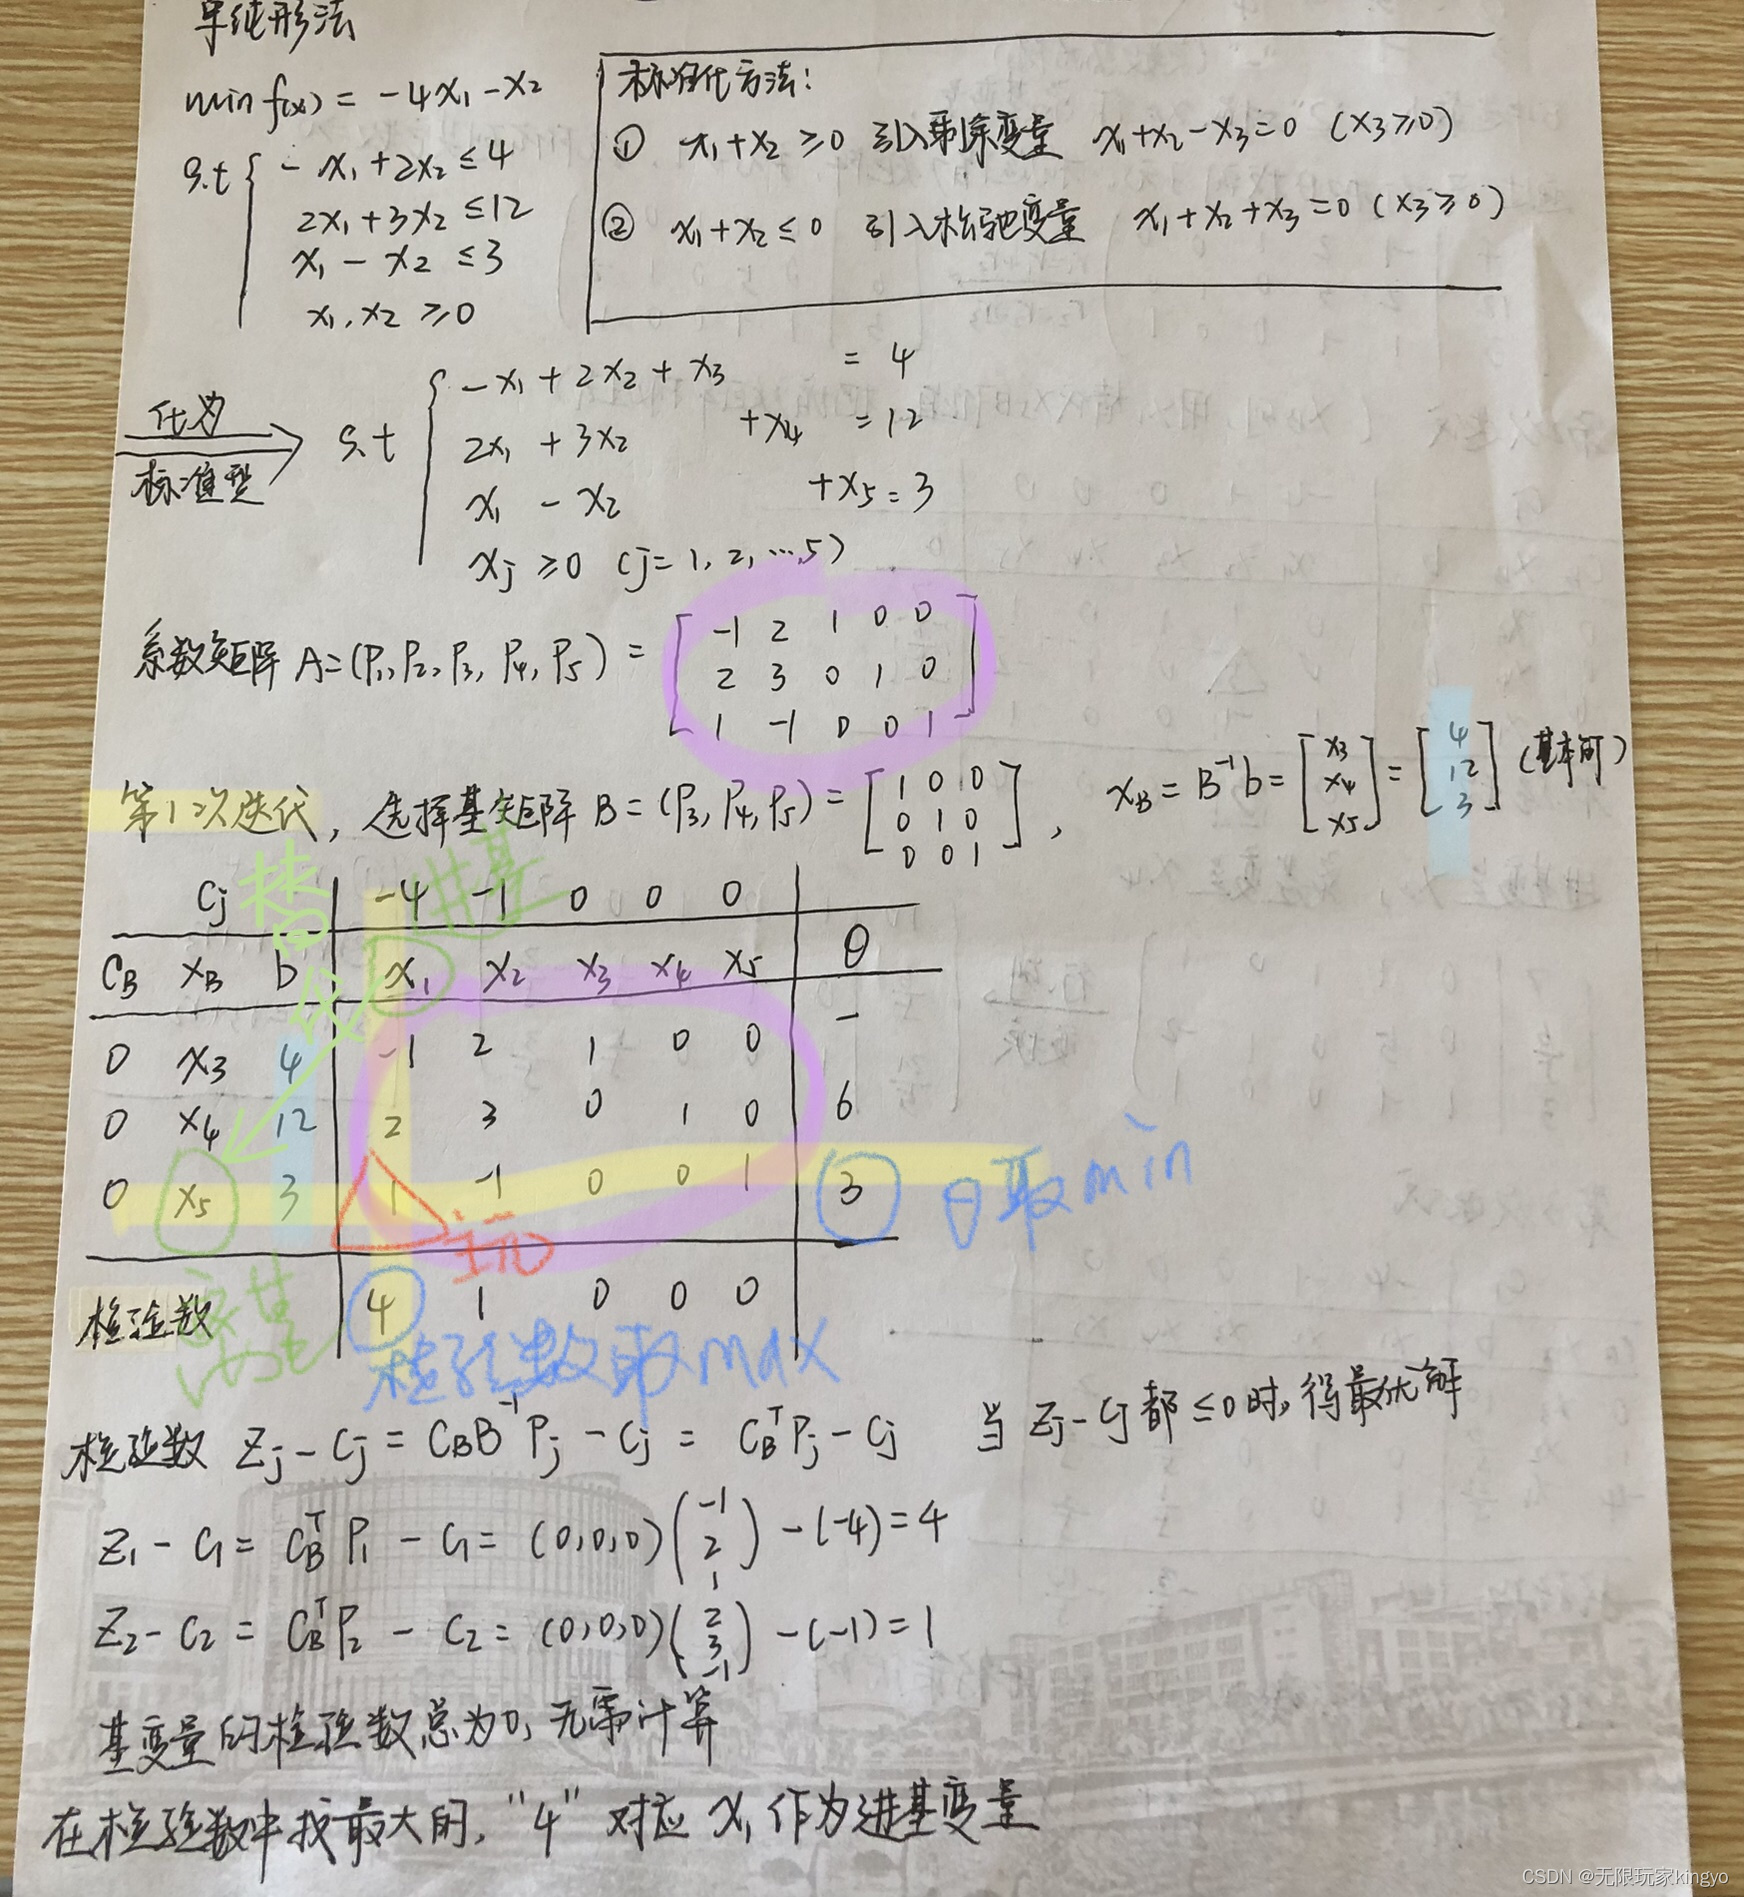 单纯形法
min f(x) = -4x₁ - x₂
s.t { -x₁ + 2x₂ ≤ 4
2x₁ + 3x₂ ≤ 12
x₁ - x₂ ≤ 3
x₁, x₂ ≥ 0
标准化方法:
① x₁ + x₂ ≥ 0 引入剩余变量 x₁ + x₂ - x₃ = 0 (x₃ ≥ 0)
② x₁ + x₂ ≤ 0 引入松弛变量 x₁ + x₂ + x₃ = 0 (x₃ ≥ 0)
化为
标准型
s.t { -x₁ + 2x₂ + x₃ = 4
2x₁ + 3x₂ + x₄ = 12
x₁ - x₂ + x₅ = 3
xⱼ ≥ 0 (j = 1, 2, …, 5)
系数矩阵 A = (P₁, P₂, P₃, P₄, P₅) = [ -1 2 1 0 0
2 3 0 1 0
1 -1 0 0 1 ]
第1次迭代, 选择基矩阵 B = (P₃, P₄, P₅) = [ 1 0 0
0 1 0
0 0 1 ], x_B = B⁻¹b = [ x₃ x₄ x₅ ] = [ 4 12 3 ] (基本可)
替代 进基
Cⱼ -4 -1 0 0 0
C_B X_B b x₁ x₂ x₃ x₄ x₅ θ
0 x₃ 4 -1 2 1 0 0 -
0 x₄ 12 2 3 0 1 0 6
0 x₅ 3 1 -1 0 0 1 3 θ取min
主元
检验数 4 1 0 0 0
检验数取max
检验数 Zⱼ - Cⱼ = C_B B⁻¹ Pⱼ - Cⱼ = C_Bᵀ Pⱼ - Cⱼ 当 Zⱼ - Cⱼ 都 ≤ 0 时, 得最优解
Z₁ - C₁ = C_Bᵀ P₁ - C₁ = (0,0,0) ( -1 2 1 ) - (-4) = 4
Z₂ - C₂ = C_Bᵀ P₂ - C₂ = (0,0,0) ( 2 3 -1 ) - (-1) = 1
基变量的检验数总为0, 无需计算
在检验数中找最大的, "4" 对应 x₁ 作为进基变量
CSDN @无限玩家kingyo